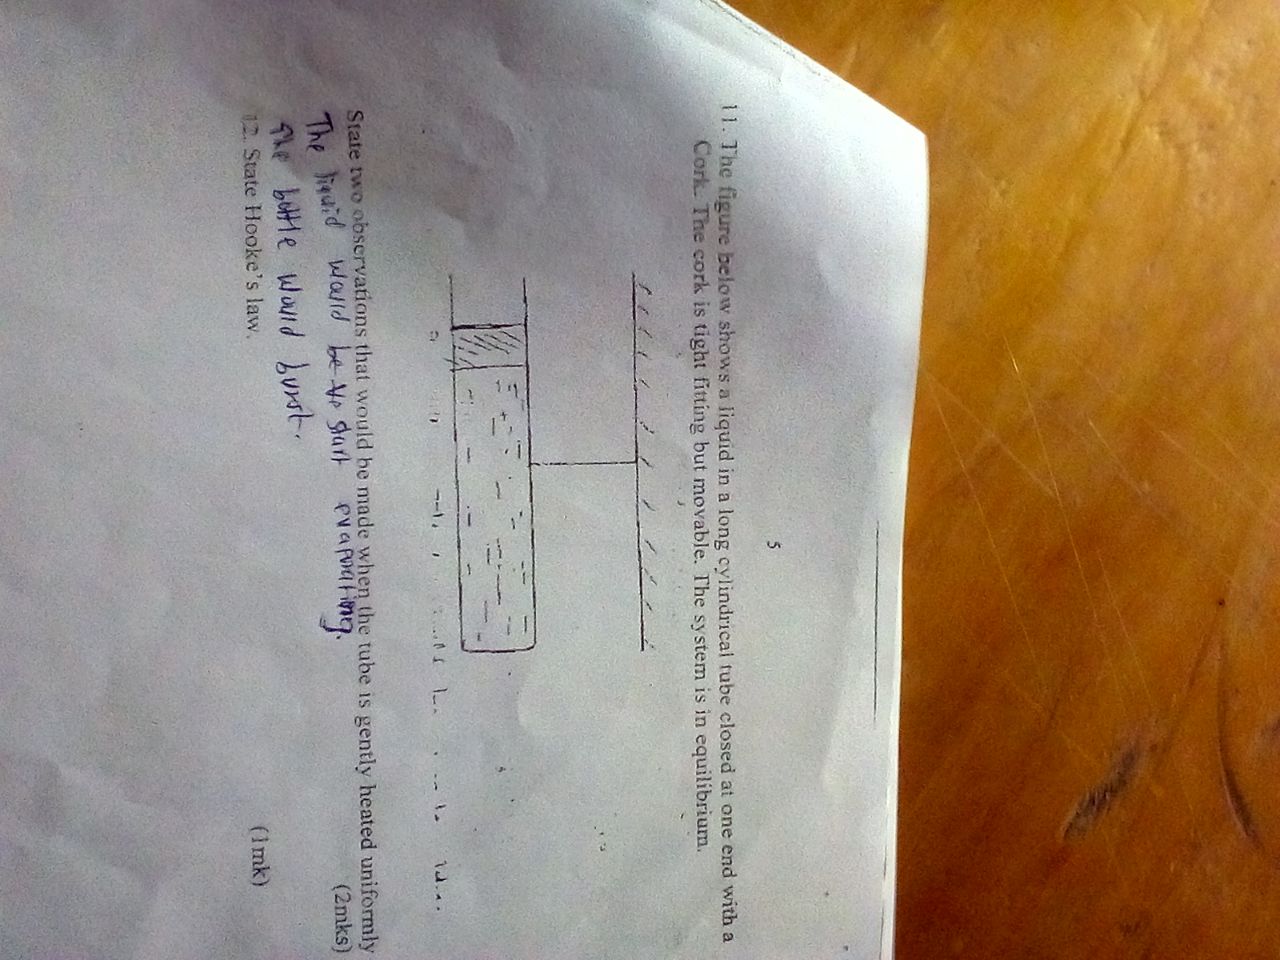 5
11. The figure below shows a liquid in a long cylindrical tube closed at one end with a
Cork. The cork is tight fitting but movable. The system is in equilibrium.
State two observations that would be made when the tube is gently heated uniformly
(2mks)
The liquid would be to start evaporating.
The bottle would burst.
12. State Hooke's law.
(1mk)